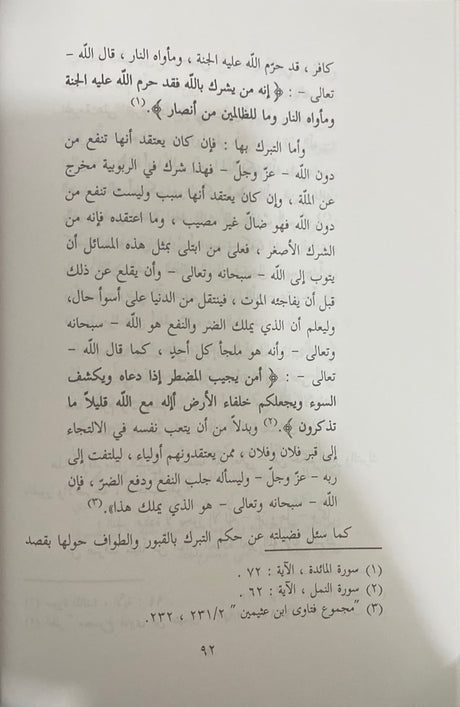 كافر ، قد حرّم اللّه عليه الجنة ، ومأواه النار ، قال اللّه –
تعالى – : ﴿ إنه من يشرك باللّه فقد حرم اللّه عليه الجنة
ومأواه النار وما للظالمين من أنصار ﴾.(١)
وأما التبرك بها : فإن كان يعتقد أنها تنفع من
دون اللّه – عزّ وجلّ – فهذا شرك في الربوبية مخرج
عن الملّة ، وإن كان يعتقد أنها سبب وليست تنفع من
دون اللّه فهو ضالّ غير مصيب ، وما اعتقده فإنه من
الشرك الأصغر ، فعلى من ابتلى بمثل هذه المسائل أن
يتوب إلى اللّه – سبحانه وتعالى – وأن يقلع عن ذلك
قبل أن يفاجئه الموت ، فينتقل من الدنيا على أسوأ حال،
وليعلم أن الذي يملك الضر والنفع هو اللّه – سبحانه
وتعالى – وأنه هو ملجأ كل أحدٍ ، كما قال اللّه –
تعالى – : ﴿ أمن يجيب المضطر إذا دعاه ويكشف
السوء ويجعلكم خلفاء الأرض أإله مع اللّه قليلاً ما
تذكرون ﴾.(٢) وبدلاً من أن يتعب نفسه في الالتجاء
إلى قبر فلان وفلان ، ممن يعتقدونهم أولياء ، ليلتفت إلى
ربه – عزّ وجلّ – وليسأله جلب النفع ودفع الضرّ ، فإن
اللّه – سبحانه وتعالى – هو الذي يملك هذا)).(٣)
كما سئل فضيلته عن حكم التبرك بالقبور والطواف حولها بقصد
(١) سورة المائدة ، الآية : ٧٢ .
(٢) سورة النمل ، الآية : ٦٢ .
(٣) "مجموع فتاوى ابن عثيمين" ٢٣١/٢ ، ٢٣٢.
٩٢